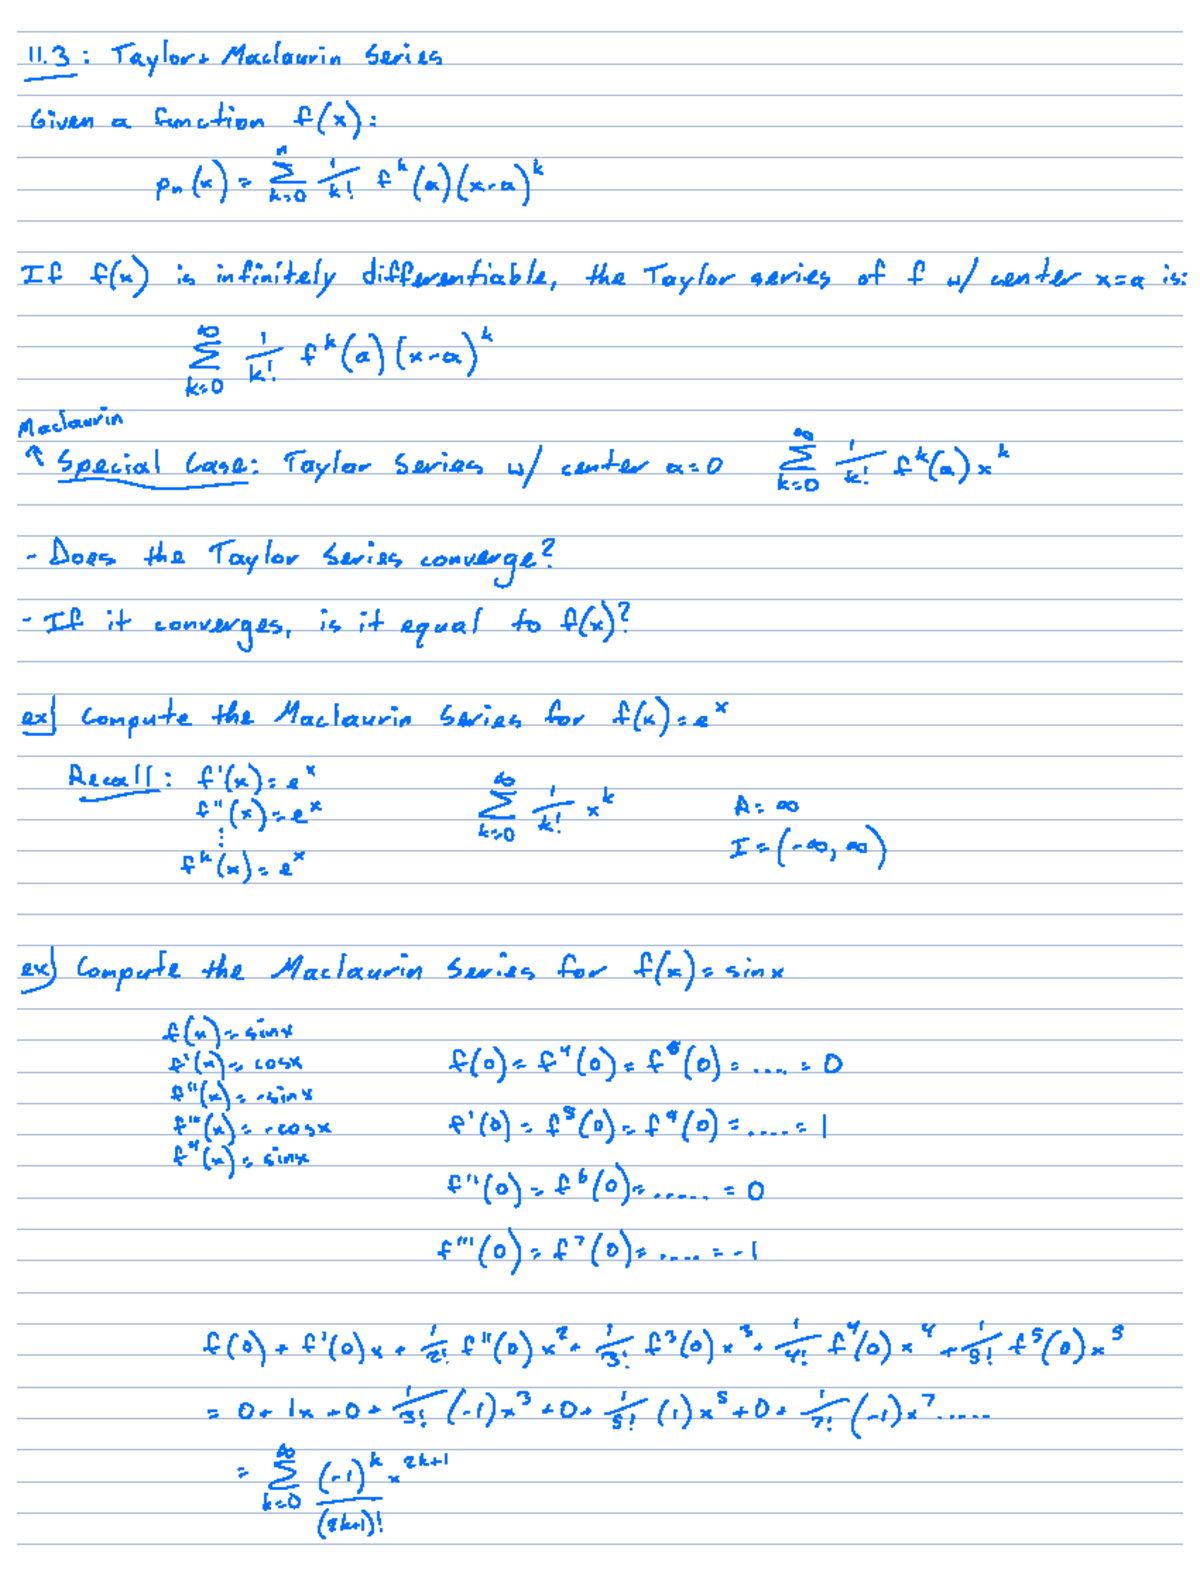 11.3: Taylor + Maclaurin Series
Given a function f(x):
pₙ(x) = Σ_{k=0}^{n} 1/k! fᵏ(a)(x-a)ᵏ
If f(x) is infinitely differentiable, the Taylor series of f w/ center x=a is:
Σ_{k=0}^{∞} 1/k! fᵏ(a)(x-a)ᵏ
Maclaurin
↑ Special Case: Taylor Series w/ center a=0 Σ_{k=0}^{∞} 1/k! fᵏ(a) xᵏ
- Does the Taylor Series converge?
- If it converges, is it equal to f(x)?
ex) Compute the Maclaurin Series for f(x)=eˣ
Recall: f'(x)=eˣ
f''(x)=eˣ
⋮
fᵏ(x)=eˣ
Σ_{k=0}^{∞} 1/k! xᵏ
R=∞
I=(-∞,∞)
ex) Compute the Maclaurin Series for f(x)=sinx
f(x)=sinx
f'(x)=cosx
f''(x)=-sinx
f'''(x)=-cosx
f⁴(x)=sinx
f(0)=f⁴(0)=f⁸(0)=....=0
f'(0)=f⁵(0)=f⁹(0)=....=1
f''(0)=f⁶(0)=.....=0
f'''(0)=f⁷(0)=....=-1
f(0)+f'(0)x+1/2! f''(0)x²+1/3! f³(0)x³+1/4! f⁴(0)x⁴+1/5! f⁵(0)x⁵
=0+1x+0+1/3!(-1)x³+0+1/5!(1)x⁵+0+1/7!(-1)x⁷.....
=Σ_{k=0}^{∞} (-1)ᵏ x²ᵏ⁺¹/(2k+1)!